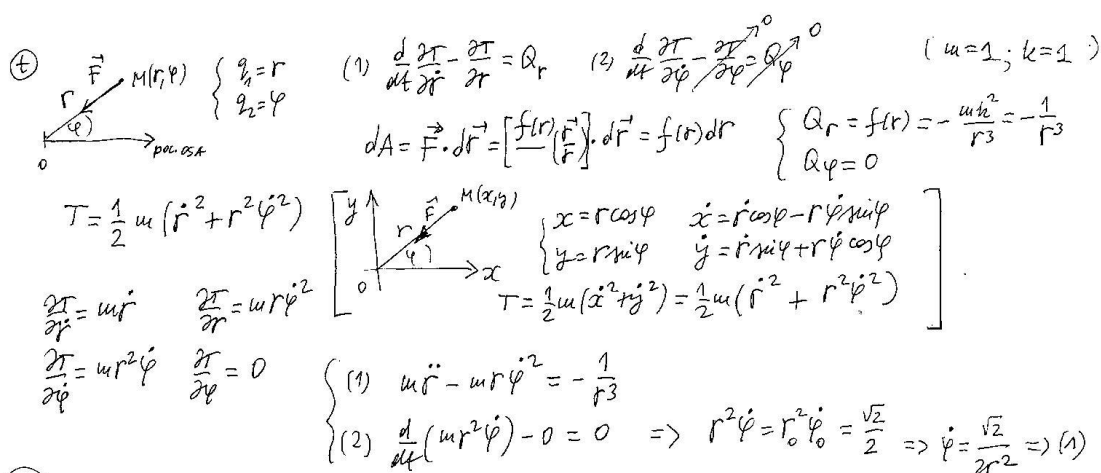 t
F⃗ M(r,φ) { q₁=r
r φ { q₂=φ
0 pol. osA
(1) d/dt ∂T/∂ṙ - ∂T/∂r = Q_r (2) d/dt ∂T/∂φ̇ - ∂T/∂φ = Q_φ 0 0 (m=1; k=1)
dA = F⃗·dr⃗ = [f(r)(r⃗/r)]·dr⃗ = f(r)dr { Q_r = f(r) = -mk²/r³ = -1/r³
{ Q_φ = 0
T = 1/2 m(ṙ² + r²φ̇²) [ y F⃗ M(x,y) r φ 0 x
{ x = r cosφ ẋ = ṙcosφ - rφ̇ sinφ
{ y = r sinφ ẏ = ṙ sinφ + rφ̇ cosφ
T = 1/2 m(ẋ² + ẏ²) = 1/2 m(ṙ² + r²φ̇²) ]
∂T/∂ṙ = mṙ ∂T/∂r = mrφ̇²
∂T/∂φ̇ = mr²φ̇ ∂T/∂φ = 0
{ (1) mr̈ - mrφ̇² = -1/r³
{ (2) d/dt(mr²φ̇) - 0 = 0 => r²φ̇ = r₀²φ̇₀ = √2/2 => φ̇ = √2/2r² => (1)